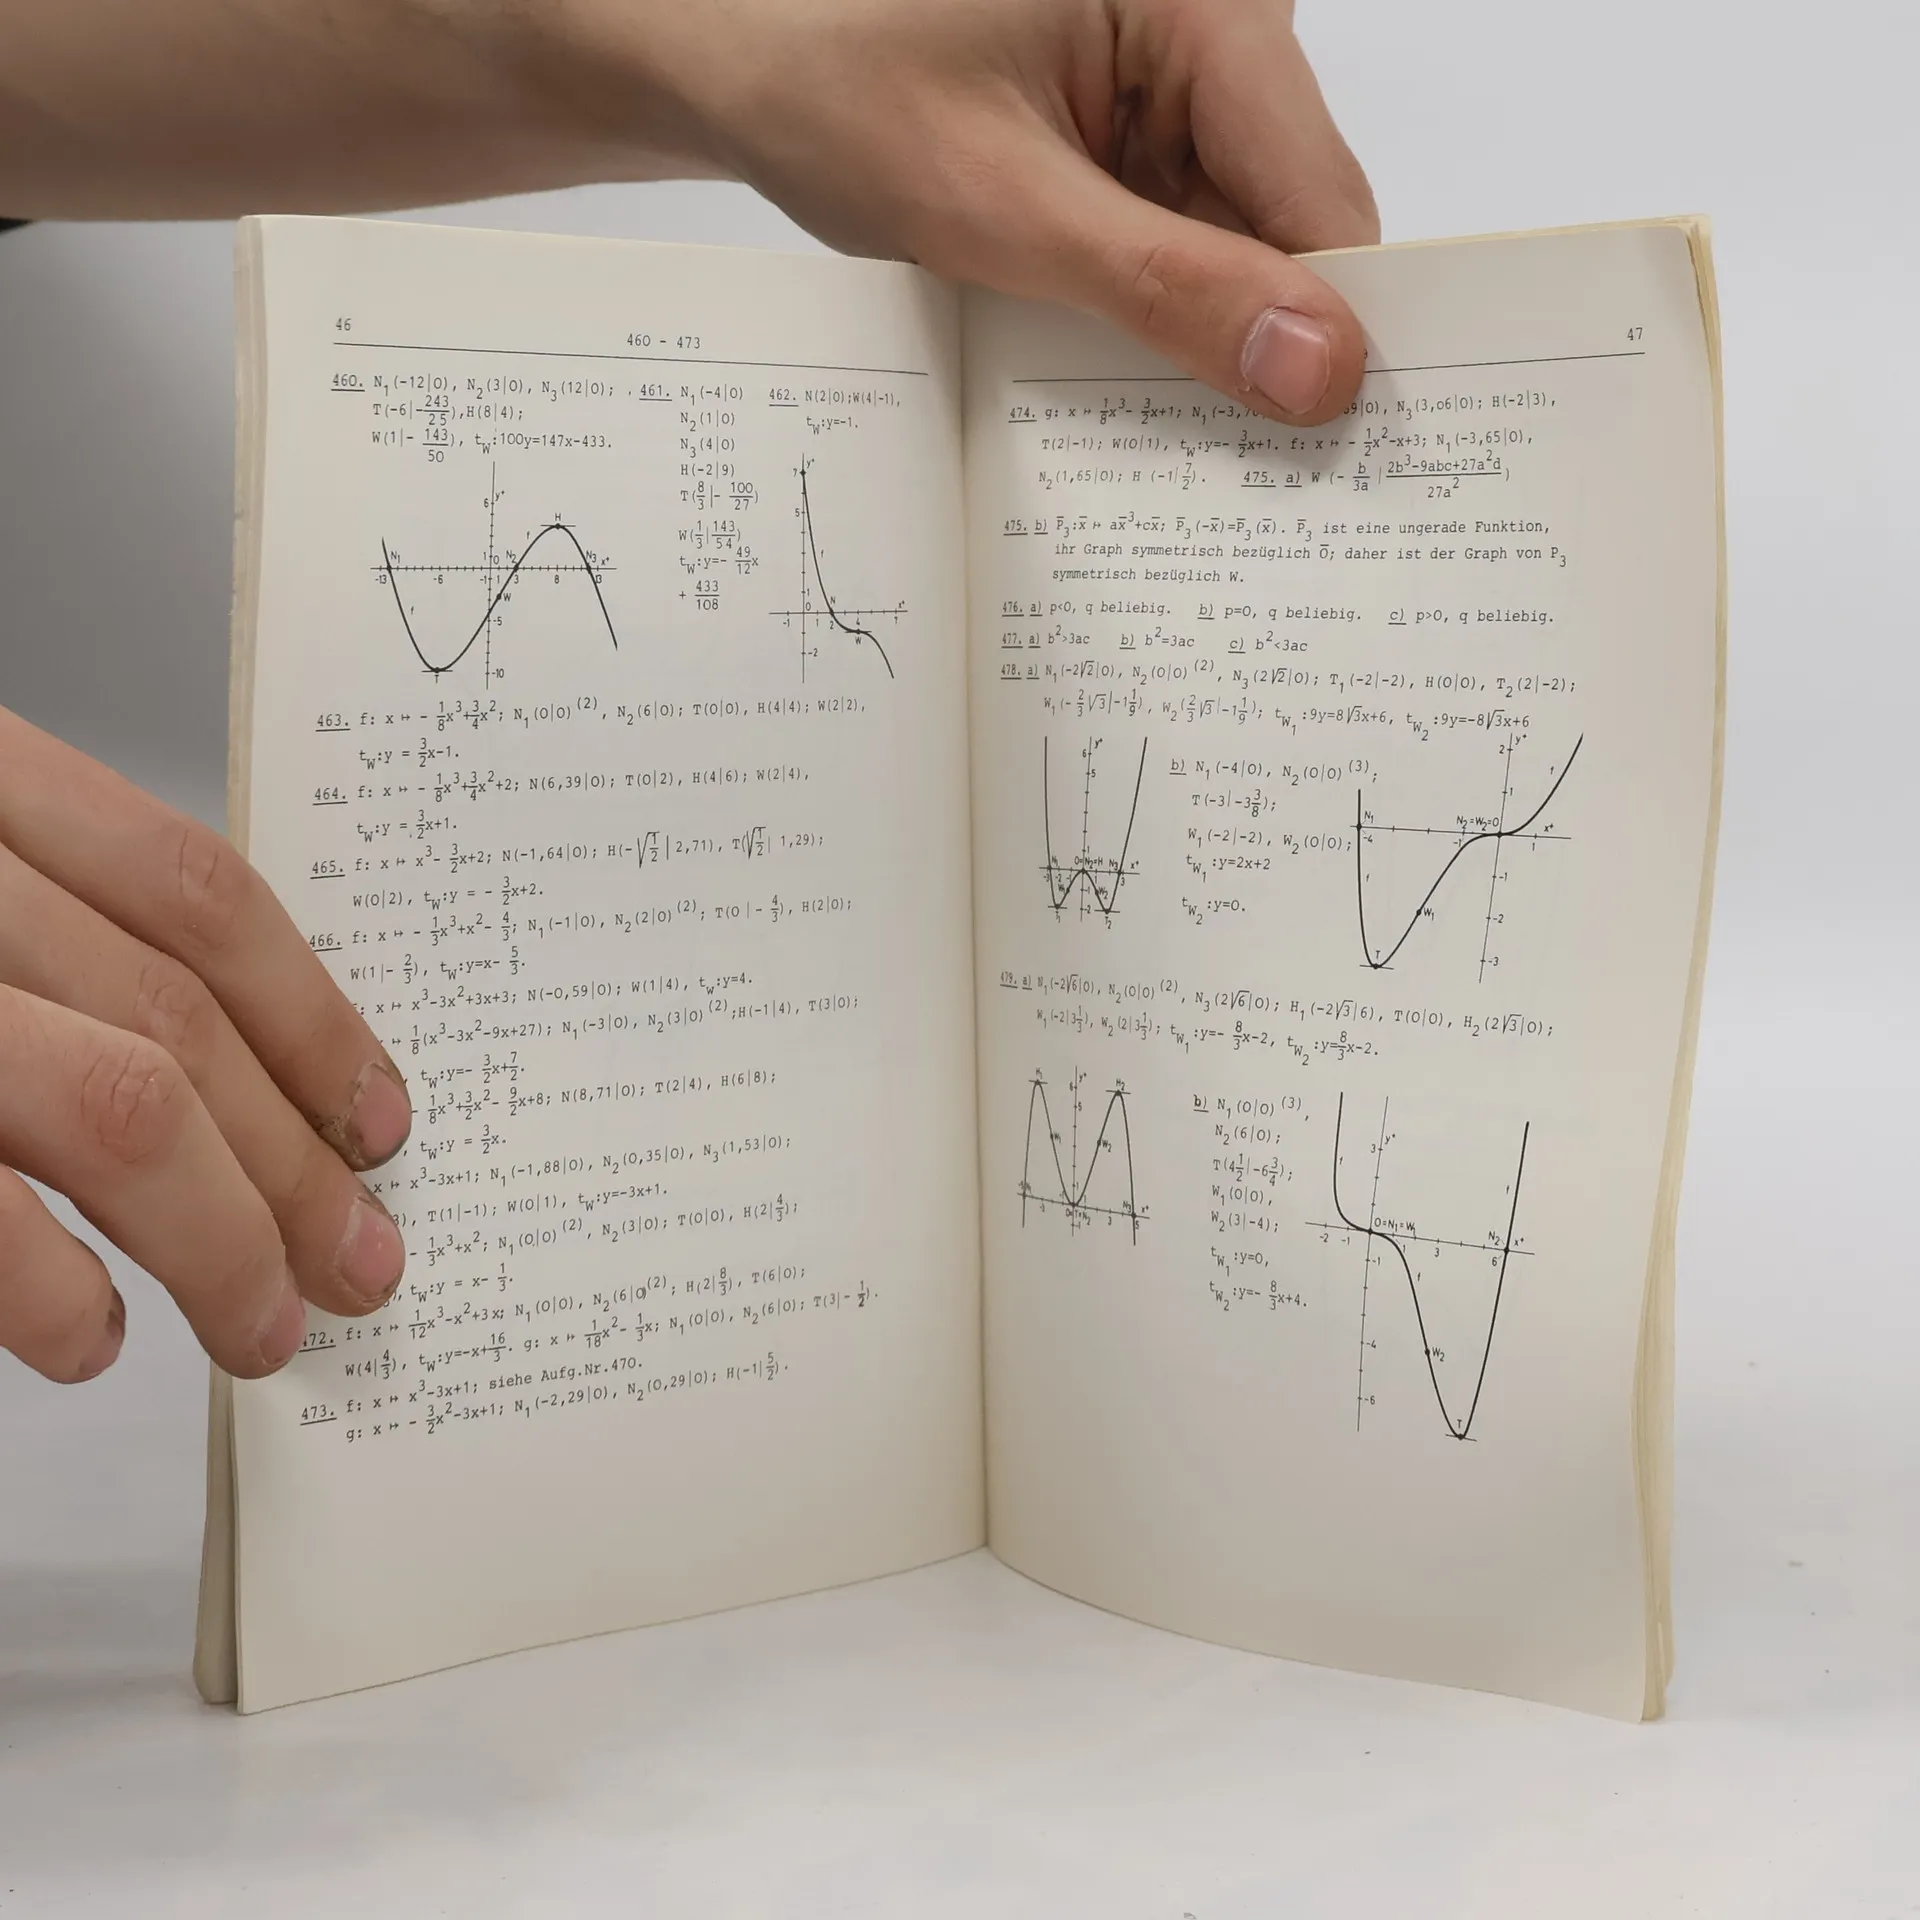 46
460 - 473
460. N₁(-12|0), N₂(3|0), N₃(12|0);
T(-6|-243/25), H(8|4);
W(1|- 143/50), t_W:100y=147x-433.
461. N₁(-4|0)
N₂(1|0)
N₃(4|0)
H(-2|9)
T(8/3|- 100/27)
W(1/3|143/54)
t_W:y=- 49/12x
+ 433/108
462. N(2|0);W(4|-1),
t_W:y=-1.
6 y⁺
H
f
N₁ 1 0 N₂ N₃ x⁺
-13 -6 -1 1 3 8 13
W
f -5
T -10
7 y⁺
5
f
1
0 N x⁺
-1 1 2 4 7
W
-2
463. f: x ↦ - 1/8x³+3/4x²; N₁(0|0)⁽²⁾, N₂(6|0); T(0|0), H(4|4); W(2|2),
t_W:y = 3/2x-1.
464. f: x ↦ - 1/8x³+3/4x²+2; N(6,39|0); T(0|2), H(4|6); W(2|4),
t_W:y = 3/2x+1.
465. f: x ↦ x³- 3/2x+2; N(-1,64|0); H(-√(1/2) | 2,71), T(√(1/2) | 1,29);
W(0|2), t_W:y = - 3/2x+2.
466. f: x ↦ - 1/3x³+x²- 4/3; N₁(-1|0), N₂(2|0)⁽²⁾; T(0 |- 4/3), H(2|0);
W(1|- 2/3), t_W:y=x- 5/3.
: x ↦ x³-3x²+3x+3; N(-0,59|0); W(1|4), t_w:y=4.
↦ 1/8(x³-3x²-9x+27); N₁(-3|0), N₂(3|0)⁽²⁾;H(-1|4), T(3|0);
, t_W:y=- 3/2x+7/2.
- 1/8x³+3/2x²- 9/2x+8; N(8,71|0); T(2|4), H(6|8);
, t_W:y = 3/2x.
x ↦ x³-3x+1; N₁(-1,88|0), N₂(0,35|0), N₃(1,53|0);
3), T(1|-1); W(0|1), t_W:y=-3x+1.
- 1/3x³+x²; N₁(0|0)⁽²⁾, N₂(3|0); T(0|0), H(2|4/3);
), t_W:y = x- 1/3.
472. f: x ↦ 1/12x³-x²+3x; N₁(0|0), N₂(6|0)⁽²⁾; H(2|8/3), T(6|0);
W(4|4/3), t_W:y=-x+16/3. g: x ↦ 1/18x²- 1/3x; N₁(0|0), N₂(6|0); T(3|- 1/2).
473. f: x ↦ x³-3x+1; siehe Aufg.Nr.470.
g: x ↦ - 3/2x²-3x+1; N₁(-2,29|0), N₂(0,29|0); H(-1|5/2).
47
474. g: x ↦ 1/8x³- 3/2x+1; N₁(-3,7 69|0), N₃(3,06|0); H(-2|3),
T(2|-1); W(0|1), t_W:y=- 3/2x+1. f: x ↦ - 1/2x²-x+3; N₁(-3,65|0),
N₂(1,65|0); H (-1|7/2). 475. a) W (- b/3a | 2b³-9abc+27a²d/27a²)
475. b) P̅₃:x̅ ↦ ax̅³+cx̅; P̅₃(-x̅)=P̅₃(x̅). P̅₃ ist eine ungerade Funktion,
ihr Graph symmetrisch bezüglich O̅; daher ist der Graph von P₃
symmetrisch bezüglich W.
476. a) p<0, q beliebig. b) p=0, q beliebig. c) p>0, q beliebig.
477. a) b²>3ac b) b²=3ac c) b²<3ac
478. a) N₁(-2√2|0), N₂(0|0)⁽²⁾, N₃(2√2|0); T₁(-2|-2), H(0|0), T₂(2|-2);
W₁(- 2/3√3|-1 1/9), W₂(2/3√3|-1 1/9); t_W₁:9y=8√3x+6, t_W₂:9y=-8√3x+6
6 y⁺
5
1
N₁ 0=N₂=H N₃ x⁺
-3 -2 -1 3
W₁ -1 W₂
-2
T₁ T₂
b) N₁(-4|0), N₂(0|0)⁽³⁾;
T(-3|-3 3/8);
W₁(-2|-2), W₂(0|0);
t_W₁:y=2x+2
t_W₂:y=0.
2 y⁺
f
1
N₁ N₂=W₂=0 x⁺
-4 -1 1
f -1
W₁ -2
T -3
479. a) N₁(-2√6|0), N₂(0|0)⁽²⁾, N₃(2√6|0); H₁(-2√3|6), T(0|0), H₂(2√3|0);
W₁(-2|3 1/3), W₂(2|3 1/3); t_W₁:y=- 8/3x-2, t_W₂:y=8/3x-2.
H₁ 6 y⁺ H₂
5
W₁ W₂
1
N₁ N₃ x⁺
-3 0=T=N₂ 3 5
-1
b) N₁(0|0)⁽³⁾,
N₂(6|0);
T(4 1/2|-6 3/4);
W₁(0|0),
W₂(3|-4);
t_W₁:y=0,
t_W₂:y=- 8/3x+4.
3 y⁺
f f
0=N₁=W₁ N₂ x⁺
-2 -1 1 3 6
-1
f
-4 W₂
-6
T